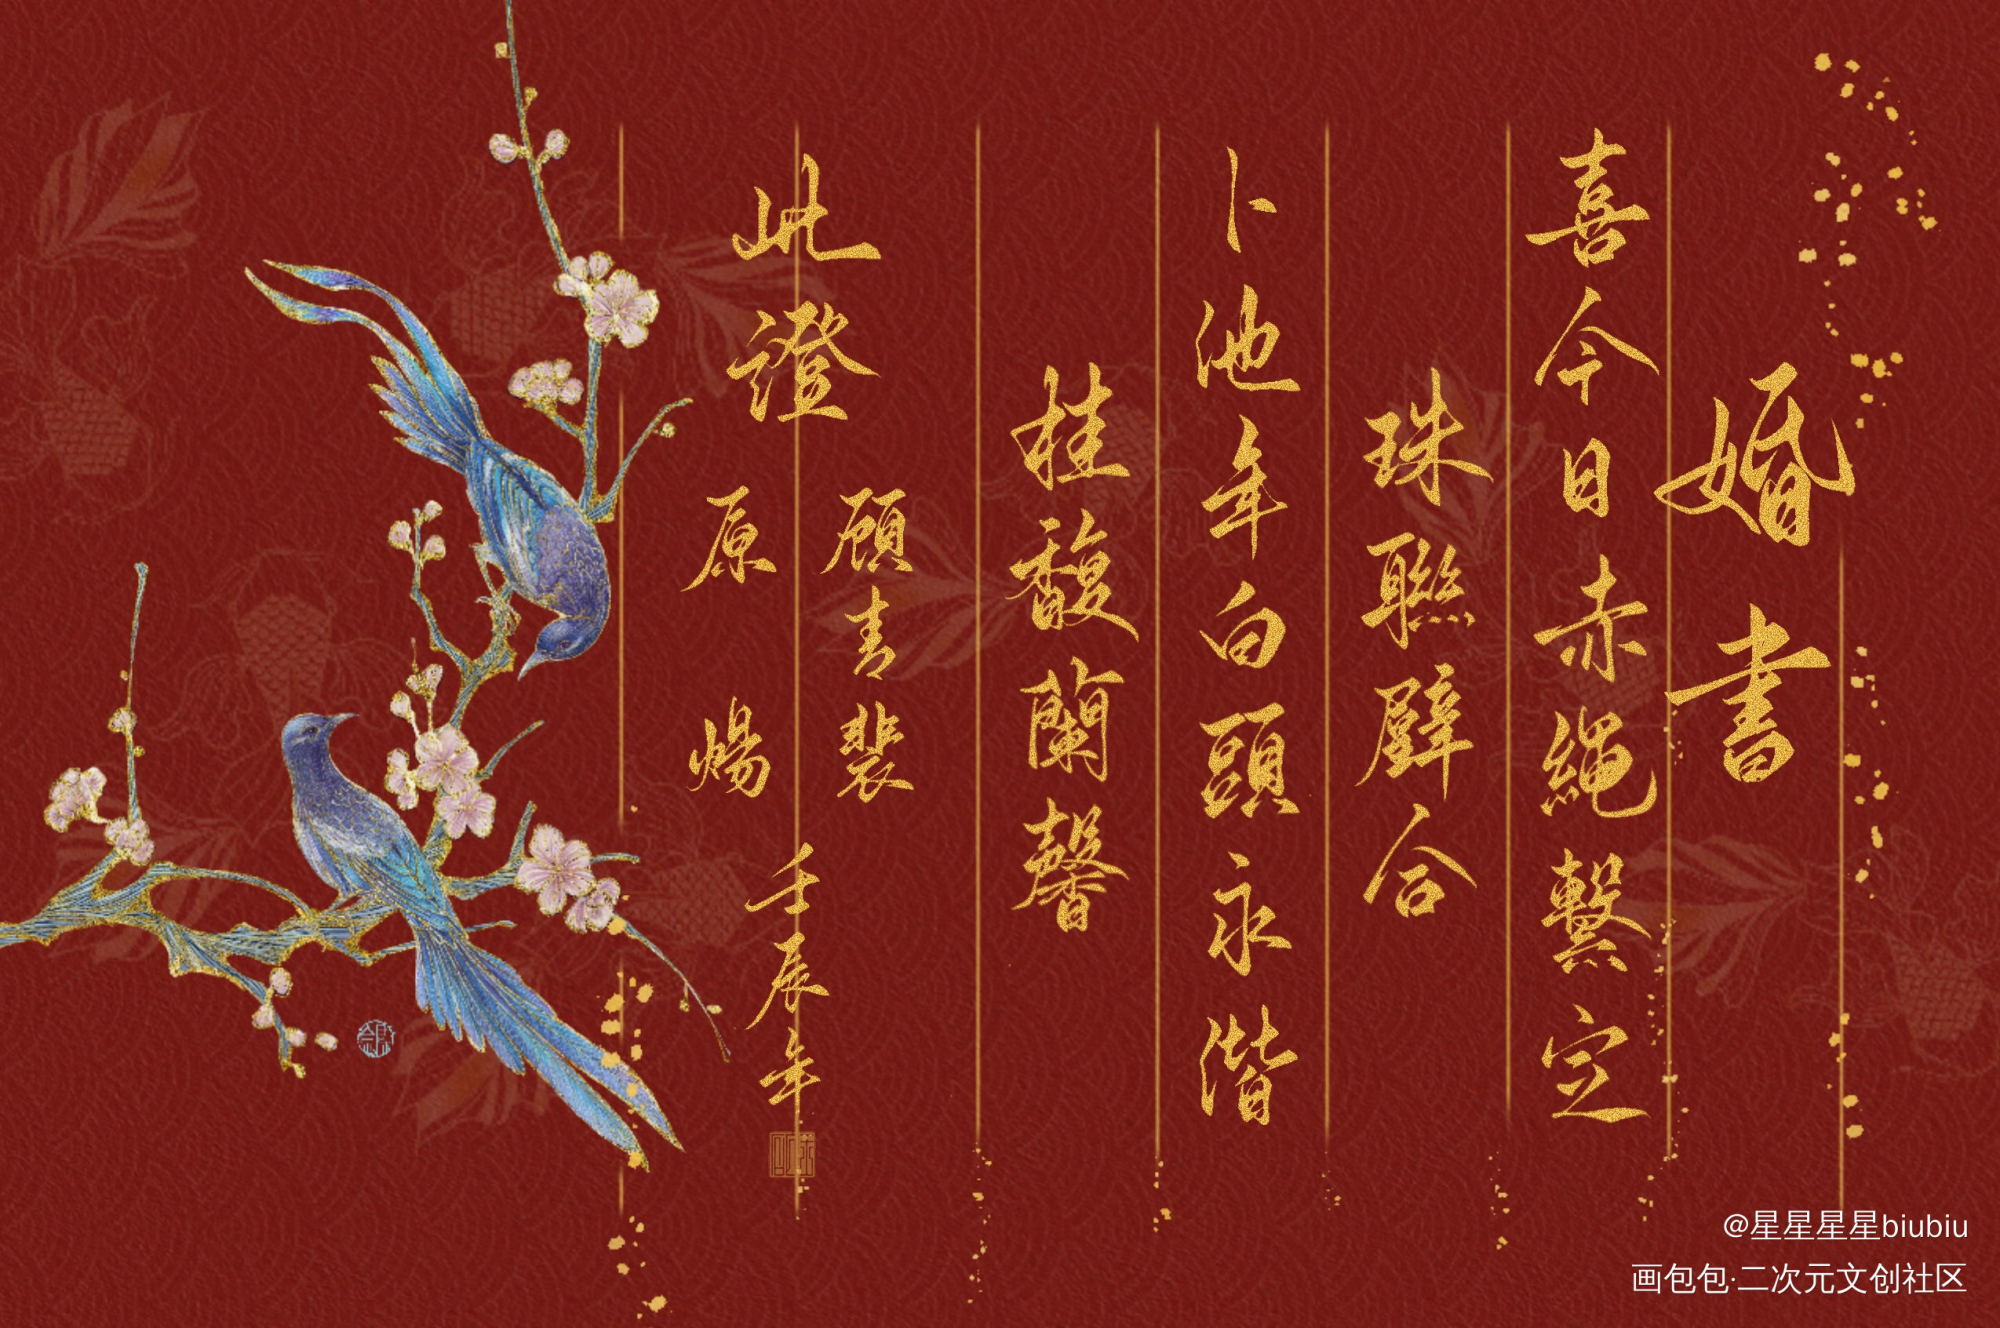 婚書
喜今日赤繩繫定
珠聯璧合
卜他年白頭永偕
桂馥蘭馨
此證
顧青裴
原煬
壬辰年
@星星星星biubiu
画包包·二次元文创社区